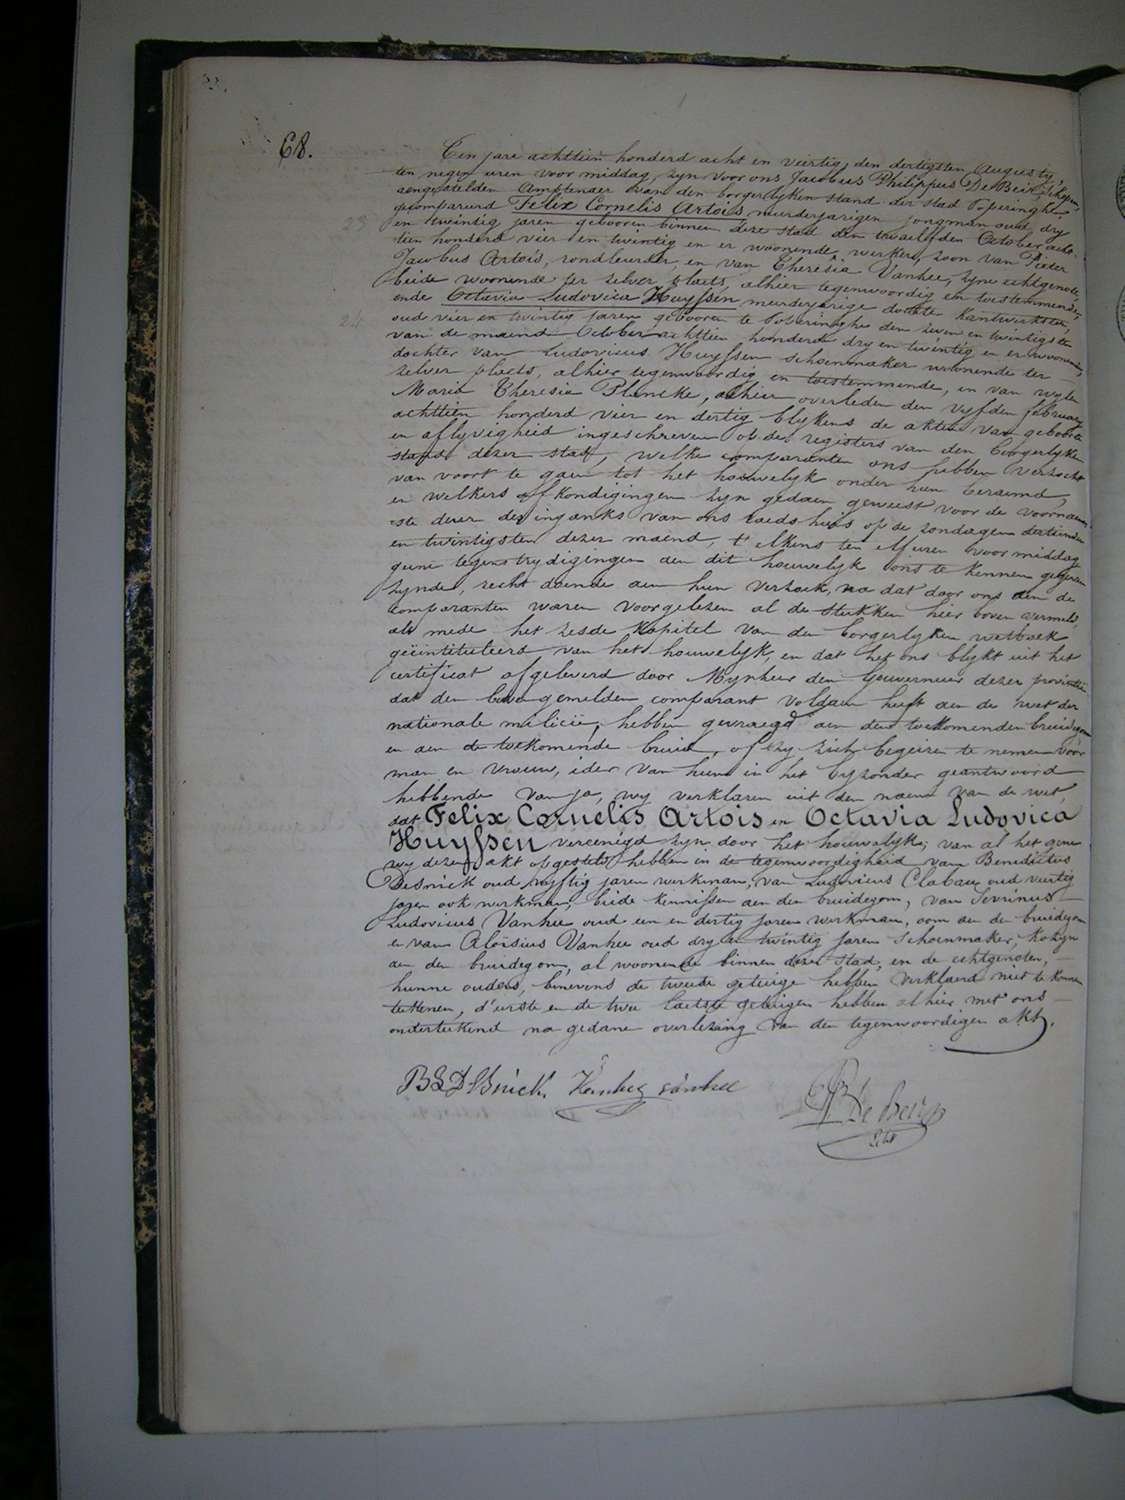 68.
Een jare achttien honderd acht en veertig, den dertigsten Augusty,
ten negen uren voor middag, zyn voor ons Jacobus Philippus De Beir, Schepen,
aengestelden Amptenaer van den borgerlyken stand der stad Poperinghe,
gecompareerd Felix Cornelis Artois, meerderjarigen jongman oud dry
23 en twintig jaren geboren binnen deze stad den twaelfden October acht-
tien honderd vier en twintig en er woonende, werker, zoon van Pieter
Jacobus Artois, rondleurder, en van Theresia Vanhee, zyne echtgenote,
beide woonende ter zelver plaets, alhier tegenwoordig en toestemmende,
ende Octavia Ludovica Huyssen meerderjarige dochter kantwerkster,
24 oud vier en twintig jaren geboren te Poperinghe den zeven en twintigsten
van de maend October achttien honderd dry en twintig en er woonende,
dochter van Ludovicus Huyssen schoenmaker woonende ter
zelver plaets, alhier tegenwoordig en toestemmende, en van wylen
Maria Theresia Plancke, alhier overleden den vyfden february
achttien honderd vier en dertig blykens de akten van geboorte
en aflyvigheid ingeschreven op de registers van den borgerlyken
stand dezer stad, welke comparanten ons hebben verzocht
van voort te gaen tot het houwelyk onder hun beraemd,
en welkers afkondigingen zyn gedaen geweest voor de voornaem-
ste deure des inganks van ons raedshuis op de zondagen dertienden
en twintigsten dezer maend, t'elkens ten elf uren voor middag
geene tegenstrydigingen aen dit houwelyk ons te kennen gegeven
zynde, recht doende aen hun verzoek, na dat door ons aen de
comparanten waren voorgelezen al de stukken hier boven vermeld,
als mede het zesde kapitel van den borgerlyken wetboek
geïntituleerd van het houwelyk, en dat het ons blykt uit het
certificat afgeleverd door Mynheer den Gouverneur dezer provincie
dat den bovengemelden comparant voldaen heeft aen de wet der
nationale milicie, hebben gevraegd aen den toekomenden bruidegom
en aen de toekomende bruid, of zy zich begeiren te nemen voor
man en vrouw, ider van hun in het byzonder geantwoord
hebbende van ja, wy verklaren uit den naem van de wet,
dat Felix Cornelis Artois en Octavia Ludovica
Huyssen vereenigd zyn door het houwelyk; van al het gene
wy dezen akt opgesteld hebben in de tegenwoordigheid van Benedictus
Desmick oud vyftig jaren werkman, van Ludovicus Clabau oud veertig
jaren ook werkman, beide kennissen aen den bruidegom, van Severinus
Ludovicus Vanhee oud een en dertig jaren werkman, oom aen de bruidegom
en van Aloïsius Vanhee oud dry en twintig jaren schoenmaker, kozyn
aen den bruidegom, al woonende binnen deze stad, en de echtgenoten,
hunne ouders, benevens de tweede getuige hebben verklaerd niet te konnen
teekenen, d'eerste en de twee laetste getuigen hebben alhier met ons
onderteekend na gedane overlezing van den tegenwoordigen akt.
De Beir